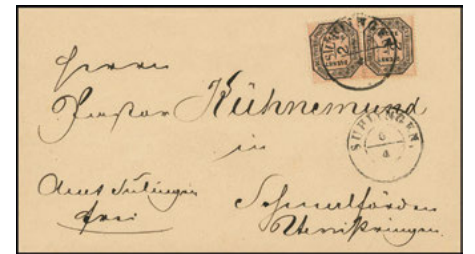 SUHLINGEN.
2
Herrn
Pastor Kühnemund
SUHLINGEN.
6
4
in
Amt Sulingen
frei
Schmalförden